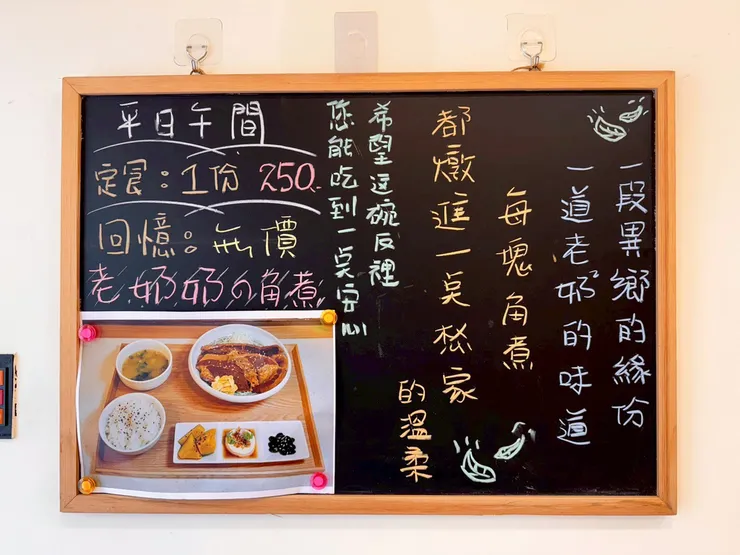 平日午間
定食：1份 250.
回憶：無價
老奶奶の角煮
一段異鄉的緣份
一道老奶奶的味道
每塊角煮
都燉進一点松家
的溫柔
希望這碗反裡
您能吃到一点安心